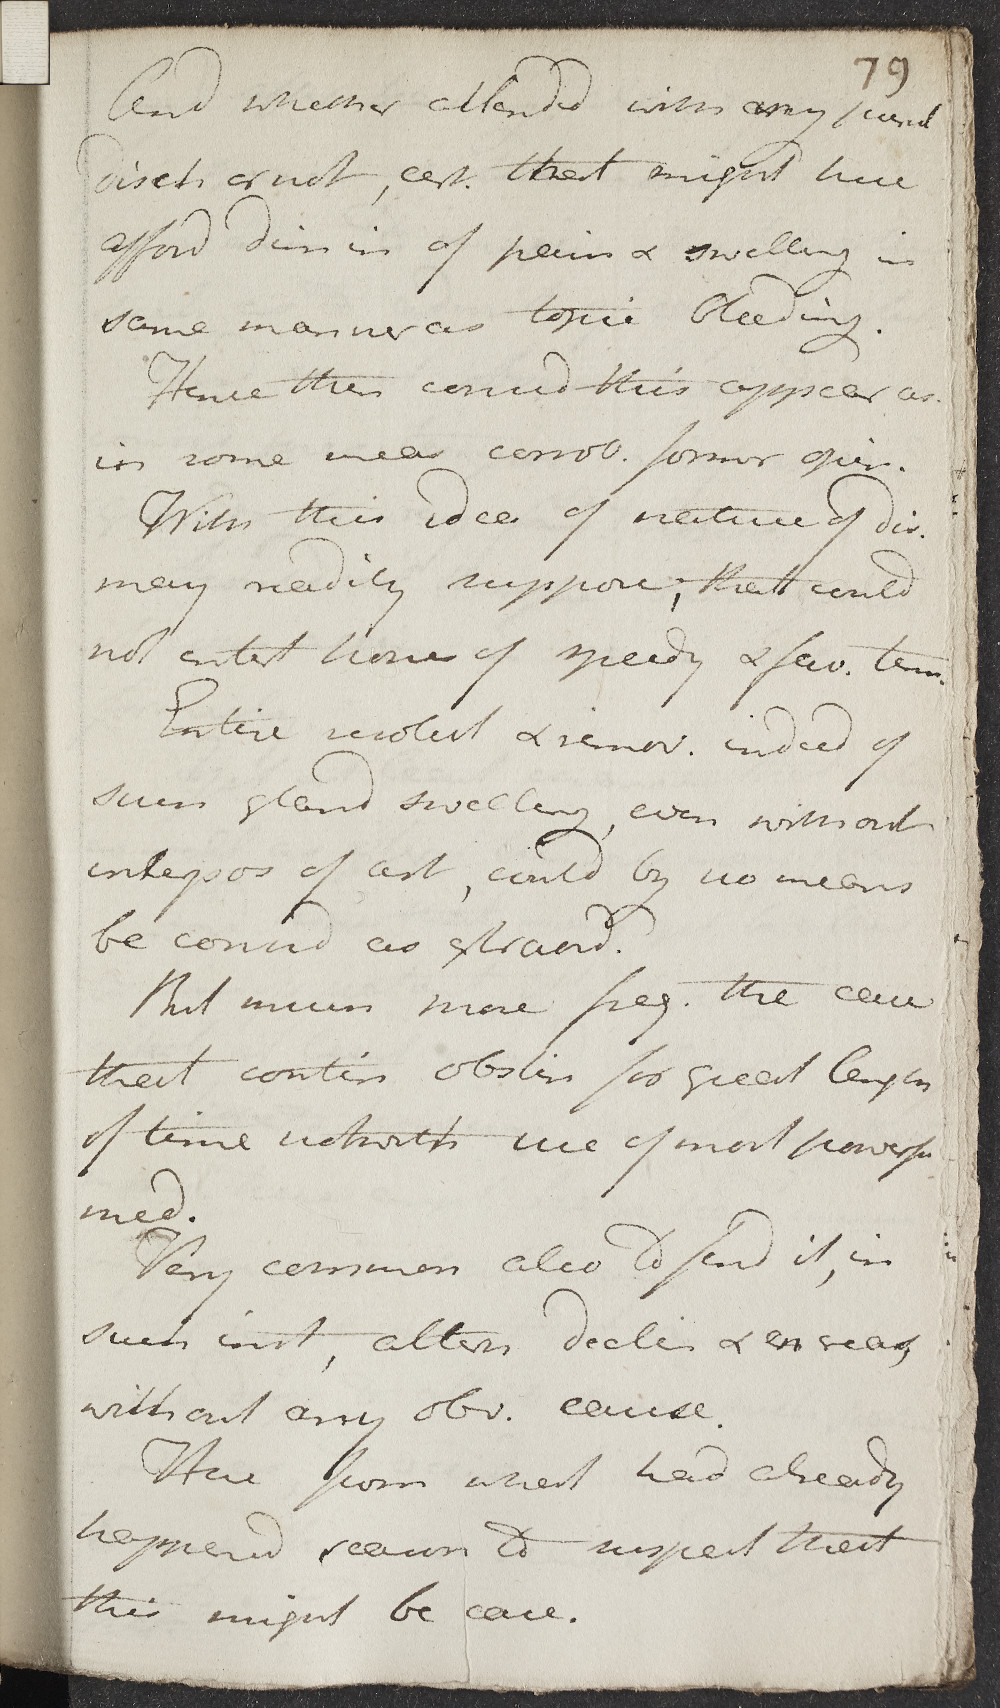 79
And whether attended with any purul
disch or not, cert. that might here
afford dimin of pain & swelling in
same manner as topic bleeding.
Hence then consid this appear as
in some meas corrob. former opin.
With this idea of nature of dis.
may readily suppose, that could
not entert hopes of speedy & fav. term.
Entire resolut & remov. indeed of
such gland swelling, even without
interpos of art, could by no means
be consid as extraord.
But much more freq. the case
that contin obstin for great length
of time notwith use of most powerfu
med.
Very common also to find it, in
such inst, altern declin & increas,
without any obv. cause.
Here from what had already
happened reason to suspect that
this might be case.